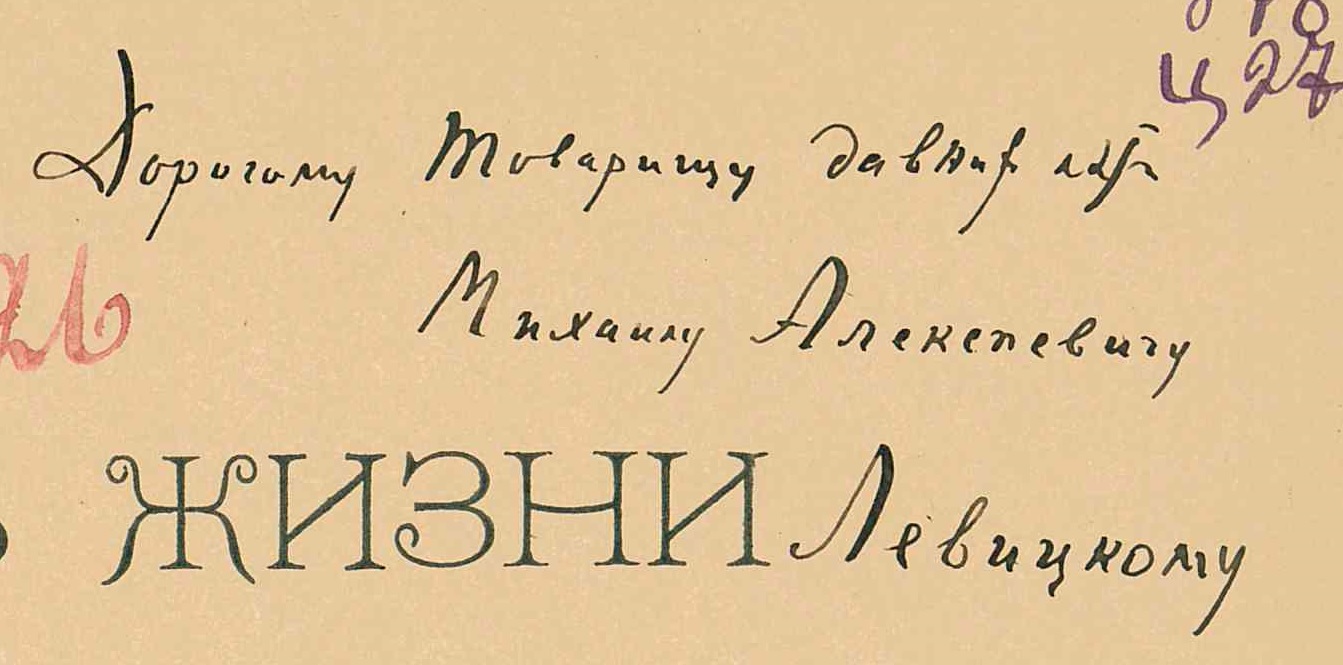 Ц 27
Дорогому Товарищу давних лет
Михаилу Алексеевичу
ЖИЗНИ Левицкому